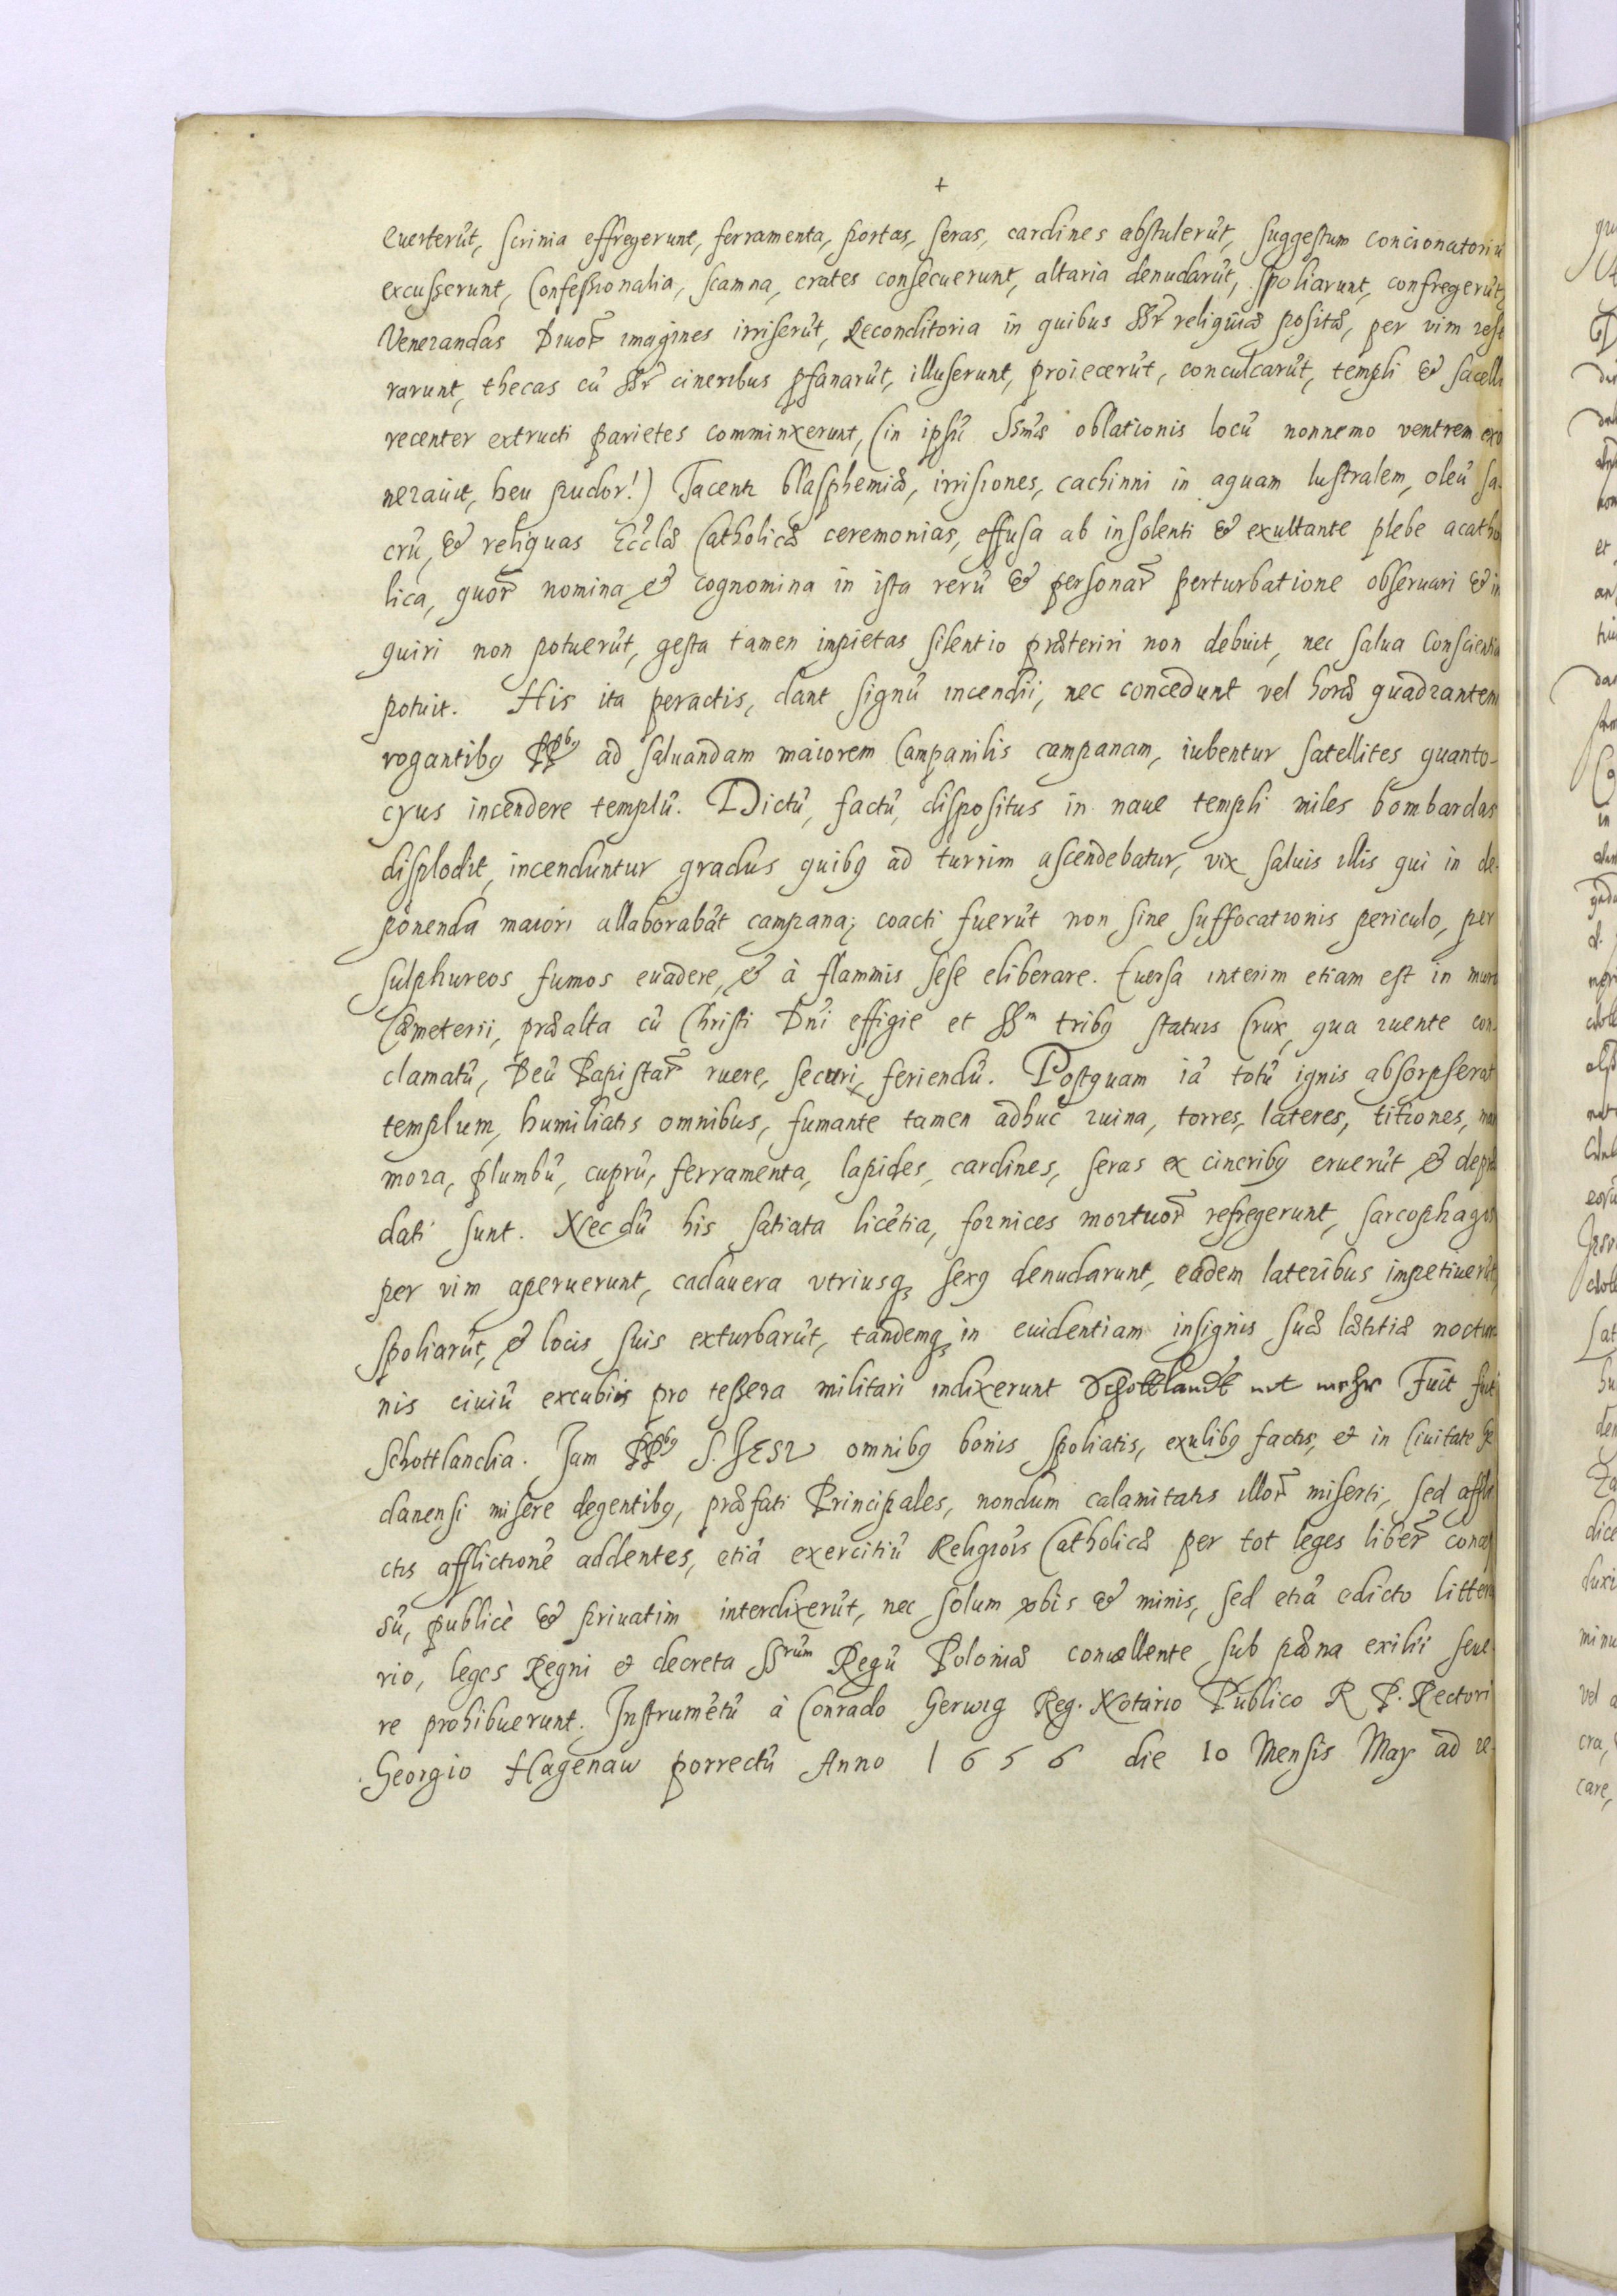 +
Euerterūt, scrinia effregerunt, ferramenta, portas, seras, cardines abstulerūt, suggestum concionatoriū
excusserunt, Confessionalia, scamna, crates consecuerunt, altaria denudarūt, spoliarunt, confregerūt,
Venerandas Diuor̃ imagines irriserūt, Reconditoria in quibus SSr̃ reliquiæ positæ, per vim rese
rarunt, thecas cū SSr̃ cineribus ꝓfanarūt, illuserunt, proiecerūt, conculcarūt, templi & sacelli
recenter extructi parietes comminxerunt, (in ipsū SSmæ oblationis locū nonnemo ventrem exo
nerauit, heu pudor!) Tacent blasphemiæ, irrisiones, cachinni in aquam lustralem, oleū sa-
crū, & reliquas Eccl̃æ Catholicæ ceremonias, effusa ab insolenti & exultante plebe acatho
lica, quor̃ nomina & cognomina in ista rerū & personar̃ perturbatione obseruari & in
quiri non potuerūt, gesta tamen impietas silentio præteriri non debuit, nec salua Conscientia
potuit. His ita peractis, dant signū incendii, nec concedunt vel horæ quadrantem
rogantibꝫ PPbꝫ ad saluandam maiorem Campanilis campanam, iubentur satellites quanto-
cyus incendere templū. Dictū, factū, dispositus in naue templi miles bombardas
displodit, incenduntur gradus quibꝫ ad turrim ascendebatur, vix saluis illis qui in de-
ponenda maiori allaborabāt campana; coacti fuerūt non sine suffocationis periculo, per
sulphureos fumos euadere, & à flammis sese eliberare. Euersa interim etiam est in muro
Cœmeterii, præalta cū Christi Dn̄i effigie et SSm tribꝫ statuis Crux, qua ruente con-
clamatū, Deū Papistar̃ ruere, securi feriendū. Postquam iā totū ignis absorpserat
templum, humiliatis omnibus, fumante tamen adhuc ruina, torres, lateres, titiones, mar
mora, plumbū, cuprū, ferramenta, lapides, cardines, seras ex cineribꝫ eruerūt & depræ
dati sunt. Nec dū his satiata licētia, fornices mortuor̃ refregerunt, sarcophagos
per vim aperuerunt, cadauera vtriusqꝫ sexꝫ denudarunt, eadem lateribus impetiuerūt,
spoliarūt, & locis suis exturbarūt, tandemqꝫ in euidentiam insignis suæ lætitiæ noctur
nis ciuiū excubiis pro tessera militari indixerunt Schottlandt nit mehr Fuit fuit
Schottlandia. Jam PPbꝫ S. JESU omnibꝫ bonis spoliatis, exulibꝫ factis, et in Ciuitate Ge
danensi misere degentibꝫ, præfati Principales, nondum calamitatis illor̃ miserti, sed affli
ctis afflictionē addentes, etiā exercitiū Religiōis Catholicæ per tot leges liber̃ conces
sū, publicè & priuatim interdixerūt, nec solum v̄bis & minis, sed etiā edicto littera
rio, leges Regni et decreta SSrum Regū Poloniæ conuellente sub pœna exilii seue
re prohibuerunt. Instrumētū à Conrado Gerwig Reg. Notario Publico R P. Rectori
Georgio Hagenaw porrectū Anno 1656 die 10 Mensis May ad re-